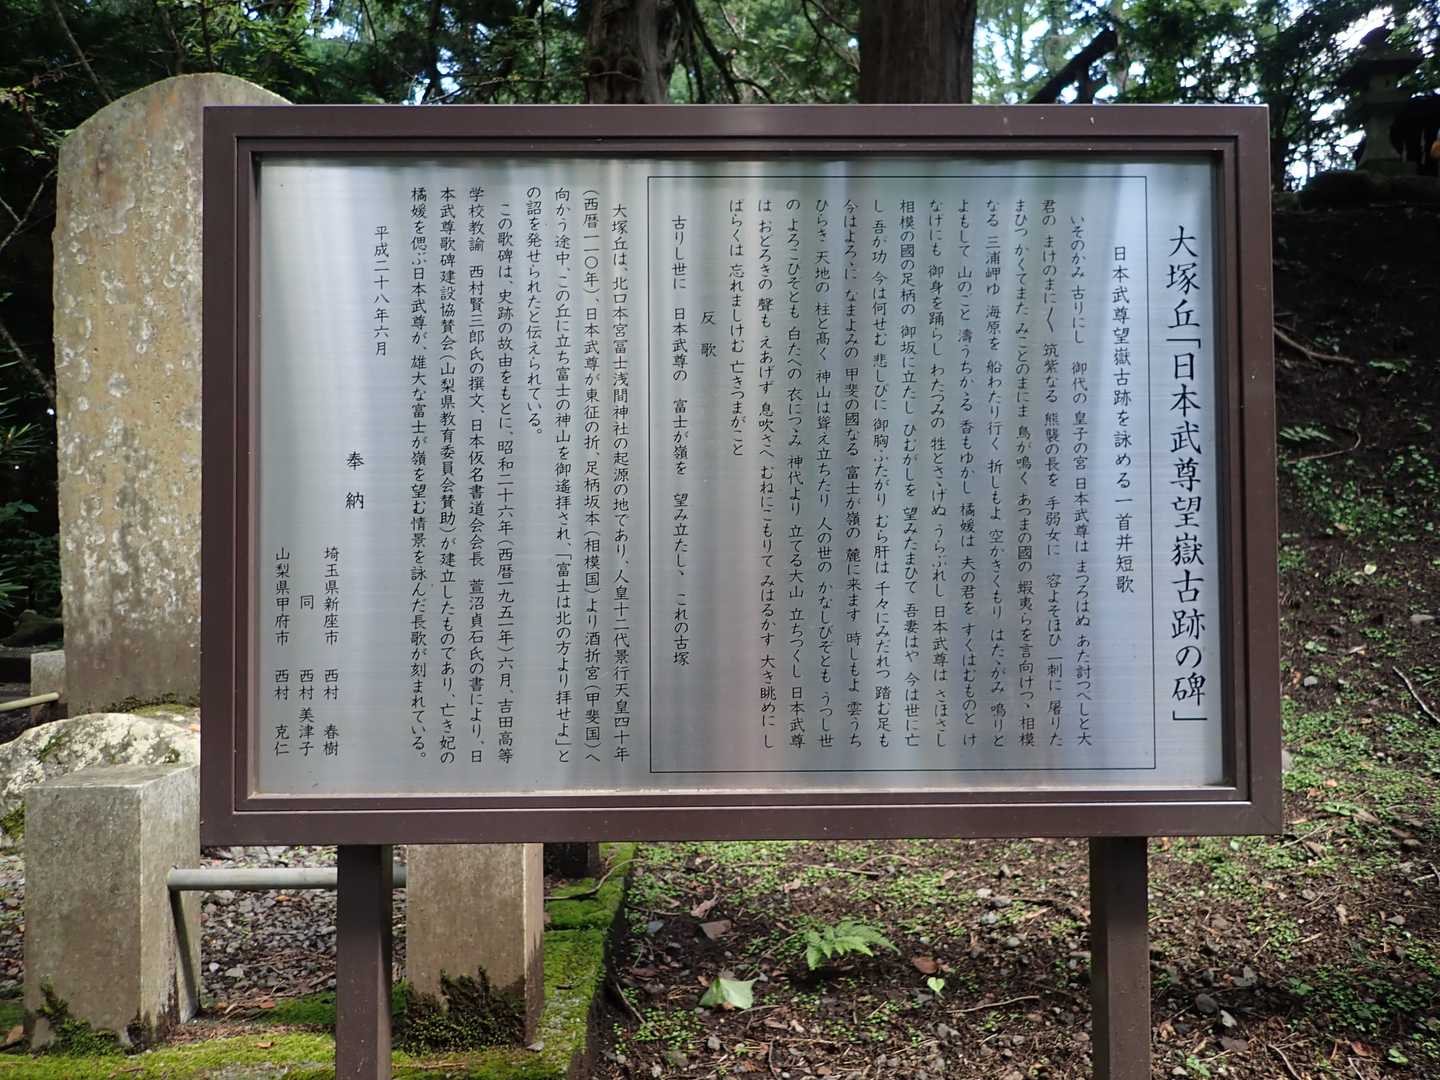 大塚丘「日本武尊望嶽古跡の碑」
日本武尊望嶽古跡を詠める一首并短歌
いそのかみ 古りにし 御代の 皇子の宮 日本武尊は まつろはぬ あた討つべしと大
君の まけのまに〱 筑紫なる 熊襲の長を 手弱女に 容よそほひ 一刺に 屠りた
まひつ かくてまた みことのまにま 鳥が鳴く あつまの國の 蝦夷らを言向けつゝ相模
なる 三浦岬ゆ 海原を 船わたり行く 折しもよ 空かきくもり はたゝがみ 鳴りと
よもして 山のごと 濤うちかゝる 香もゆかし 橘媛は 夫の君を すくはむものと け
なげにも 御身を踊らし わたつみの 牲とさゝげぬ うらぶれし 日本武尊は さほさし
相模の國の足柄の 御坂に立たし ひむがしを 望みたまひて 吾妻はや 今は世に亡
し 吾が功 今は何せむ 悲しびに 御胸ふたがり むら肝は 千々にみだれつ 踏む足も
今はよろゝに なまよみの 甲斐の國なる 富士が嶺の 麓に来ます 時しもよ 雲うち
ひらき 天地の 柱と高く 神山は聳え立ちたり 人の世の かなしびぞとも うつし世
の よろこひそとも 白たへの 衣につゝみ 神代より 立てる大山 立ちつくし 日本武尊
は おどろきの 聲も えあげず 息吹さへ むねにこもりて みはるかす 大き眺めに し
ばらくは 忘れましけむ 亡きつまがこと
反歌
古りし世に 日本武尊の 富士が嶺を 望み立たしゝ これの古塚
大塚丘は、北口本宮冨士浅間神社の起源の地であり、人皇十二代景行天皇四十年
(西暦一一〇年)、日本武尊が東征の折、足柄坂本(相模国)より酒折宮(甲斐国)へ
向かう途中、この丘に立ち富士の神山を御遙拝され、「富士は北の方より拝せよ」と
の詔を発せられたと伝えられている。
この歌碑は、史跡の故由をもとに、昭和二十六年(西暦一九五一年)六月、吉田高等
学校教諭 西村賢三郎氏の撰文、日本仮名書道会会長 萱沼貞石氏の書により、日
本武尊歌碑建設協賛会(山梨県教育委員会賛助)が建立したものであり、亡き妃の
橘媛を偲ぶ日本武尊が、雄大な富士が嶺を望む情景を詠んだ長歌が刻まれている。
平成二十八年六月
奉納
埼玉県新座市 西村 春樹
同 西村 美津子
山梨県甲府市 西村 克仁